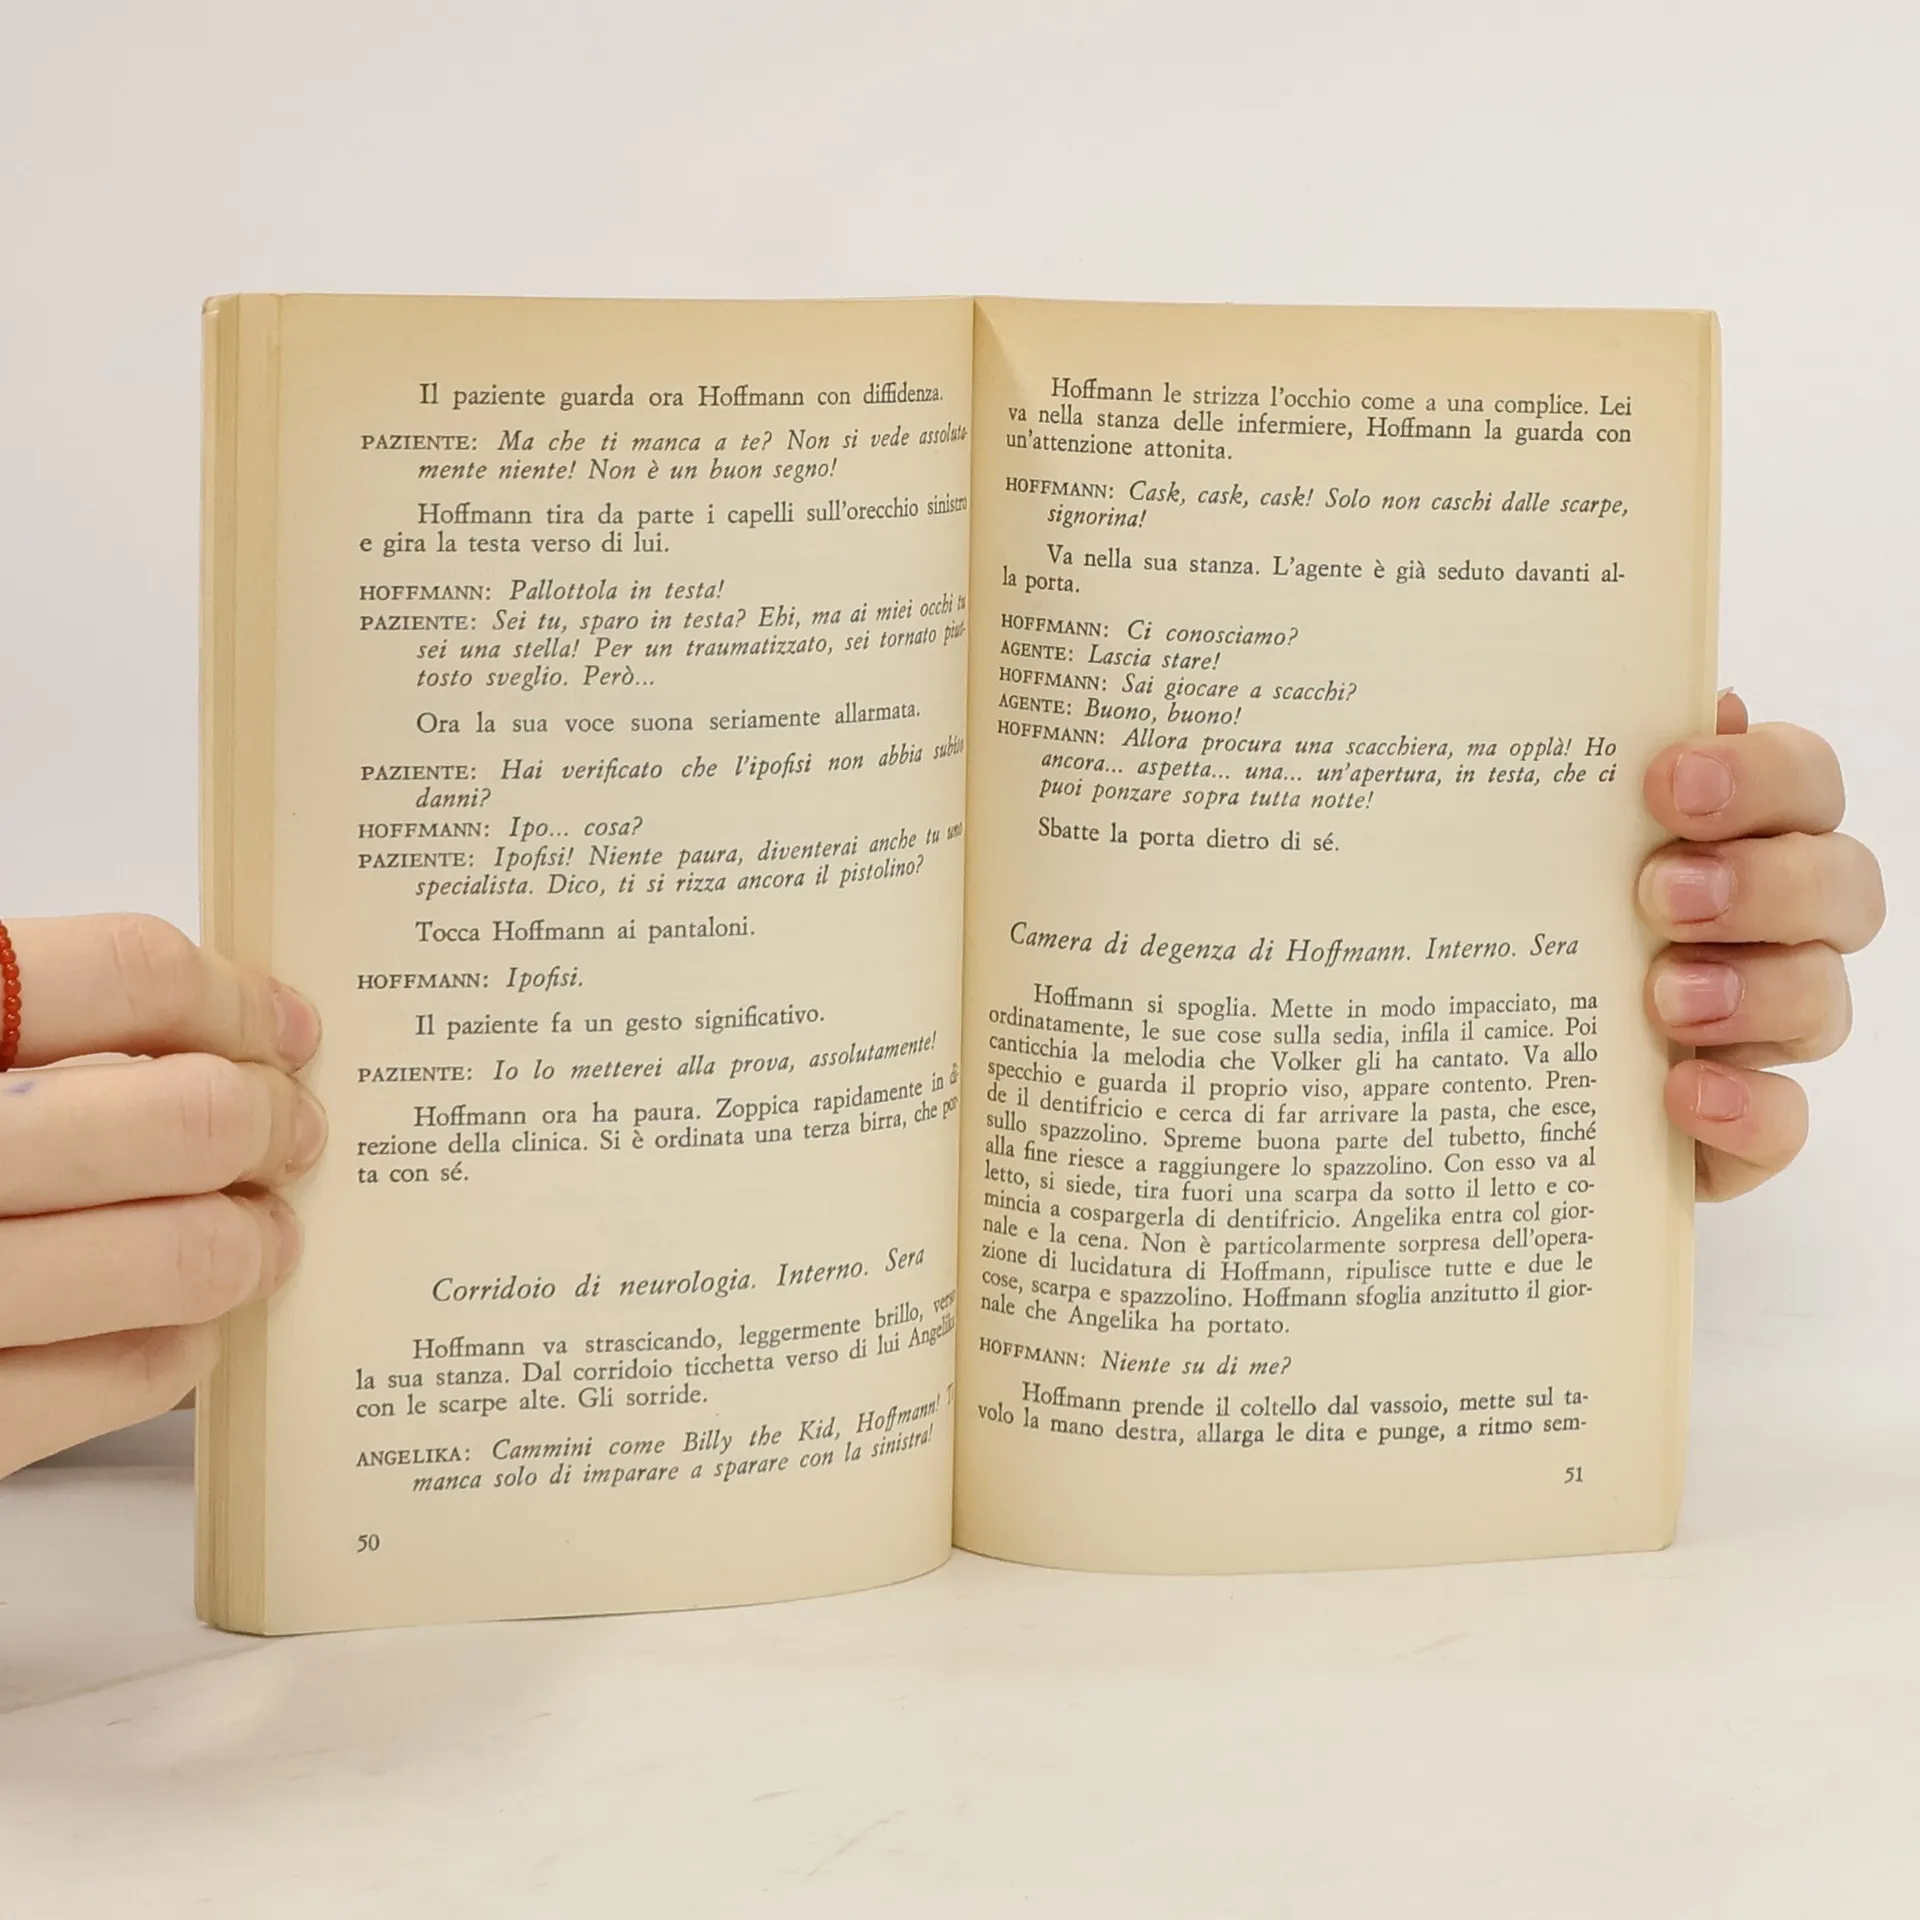 Il paziente guarda ora Hoffmann con diffidenza.
PAZIENTE: Ma che ti manca a te? Non si vede assoluta-
mente niente! Non è un buon segno!
Hoffmann tira da parte i capelli sull'orecchio sinistro
e gira la testa verso di lui.
HOFFMANN: Pallottola in testa!
PAZIENTE: Sei tu, sparo in testa? Ehi, ma ai miei occhi tu
sei una stella! Per un traumatizzato, sei tornato piut-
tosto sveglio. Però...
Ora la sua voce suona seriamente allarmata.
PAZIENTE: Hai verificato che l'ipofisi non abbia subìto
danni?
HOFFMANN: Ipo... cosa?
PAZIENTE: Ipofisi! Niente paura, diventerai anche tu uno
specialista. Dico, ti si rizza ancora il pistolino?
Tocca Hoffmann ai pantaloni.
HOFFMANN: Ipofisi.
Il paziente fa un gesto significativo.
PAZIENTE: Io lo metterei alla prova, assolutamente!
Hoffmann ora ha paura. Zoppica rapidamente in di-
rezione della clinica. Si è ordinata una terza birra, che por-
ta con sé.
Corridoio di neurologia. Interno. Sera
Hoffmann va strascicando, leggermente brillo, verso
la sua stanza. Dal corridoio ticchetta verso di lui Angelika
con le scarpe alte. Gli sorride.
ANGELIKA: Cammini come Billy the Kid, Hoffmann!
manca solo di imparare a sparare con la sinistra!
50
Hoffmann le strizza l'occhio come a una complice. Lei
va nella stanza delle infermiere, Hoffmann la guarda con
un'attenzione attonita.
HOFFMANN: Cask, cask, cask! Solo non caschi dalle scarpe,
signorina!
Va nella sua stanza. L'agente è già seduto davanti al-
la porta.
HOFFMANN: Ci conosciamo?
AGENTE: Lascia stare!
HOFFMANN: Sai giocare a scacchi?
AGENTE: Buono, buono!
HOFFMANN: Allora procura una scacchiera, ma opplà! Ho
ancora... aspetta... una... un'apertura, in testa, che ci
puoi ponzare sopra tutta notte!
Sbatte la porta dietro di sé.
Camera di degenza di Hoffmann. Interno. Sera
Hoffmann si spoglia. Mette in modo impacciato, ma
ordinatamente, le sue cose sulla sedia, infila il camice. Poi
canticchia la melodia che Volker gli ha cantato. Va allo
specchio e guarda il proprio viso, appare contento. Pren-
de il dentifricio e cerca di far arrivare la pasta, che esce,
sullo spazzolino. Spreme buona parte del tubetto, finché
alla fine riesce a raggiungere lo spazzolino. Con esso va al
letto, si siede, tira fuori una scarpa da sotto il letto e co-
mincia a cospargerla di dentifricio. Angelika entra col gior-
nale e la cena. Non è particolarmente sorpresa dell'opera-
zione di lucidatura di Hoffmann, ripulisce tutte e due le
cose, scarpa e spazzolino. Hoffmann sfoglia anzitutto il gior-
nale che Angelika ha portato.
HOFFMANN: Niente su di me?
Hoffmann prende il coltello dal vassoio, mette sul ta-
volo la mano destra, allarga le dita e punge, a ritmo sem-
51